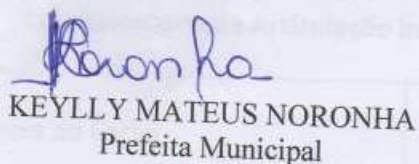 Noronha
KEYLLY MATEUS NORONHA
Prefeita Municipal